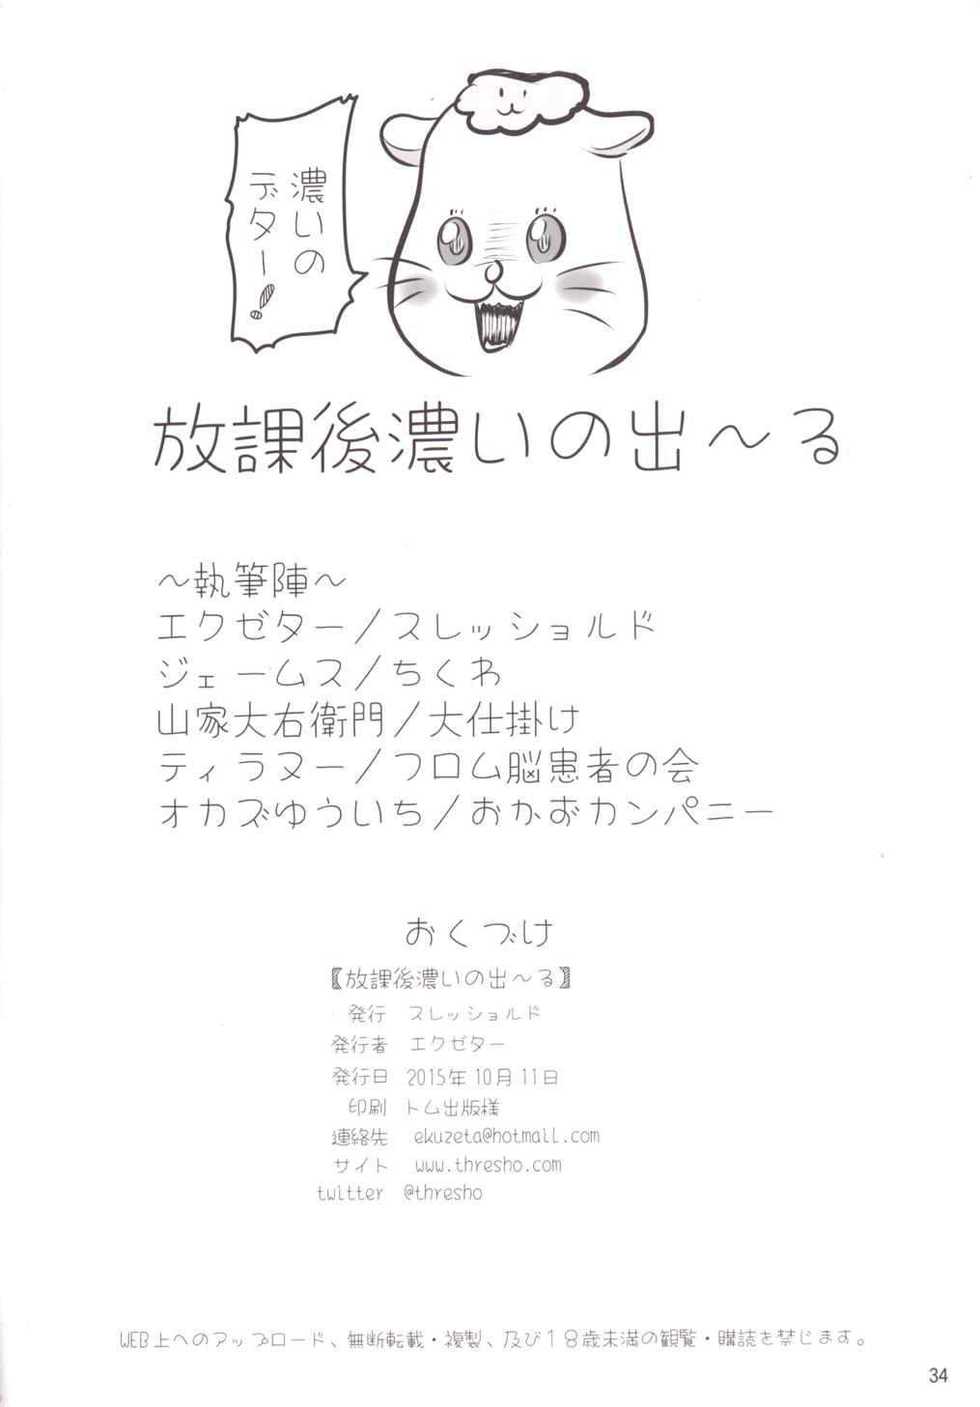 濃いの
デター!
放課後濃いの出〜る
〜執筆陣〜
エクゼター/スレッショルド
ジェームス/ちくわ
山家大右衛門/大仕掛け
ティラヌー/フロム脳患者の会
オカズゆういち/おかおカンパニー
おくづけ
〖放課後濃いの出〜る〗
発行 スレッショルド
発行者 エクゼター
発行日 2015年10月11日
印刷 トム出版様
連絡先 ekuzeta@hotmail.com
サイト www.thresho.com
twitter @thresho
WEB上へのアップロード、無断転載・複製、及び18歳未満の観覧・購読を禁じます。
34